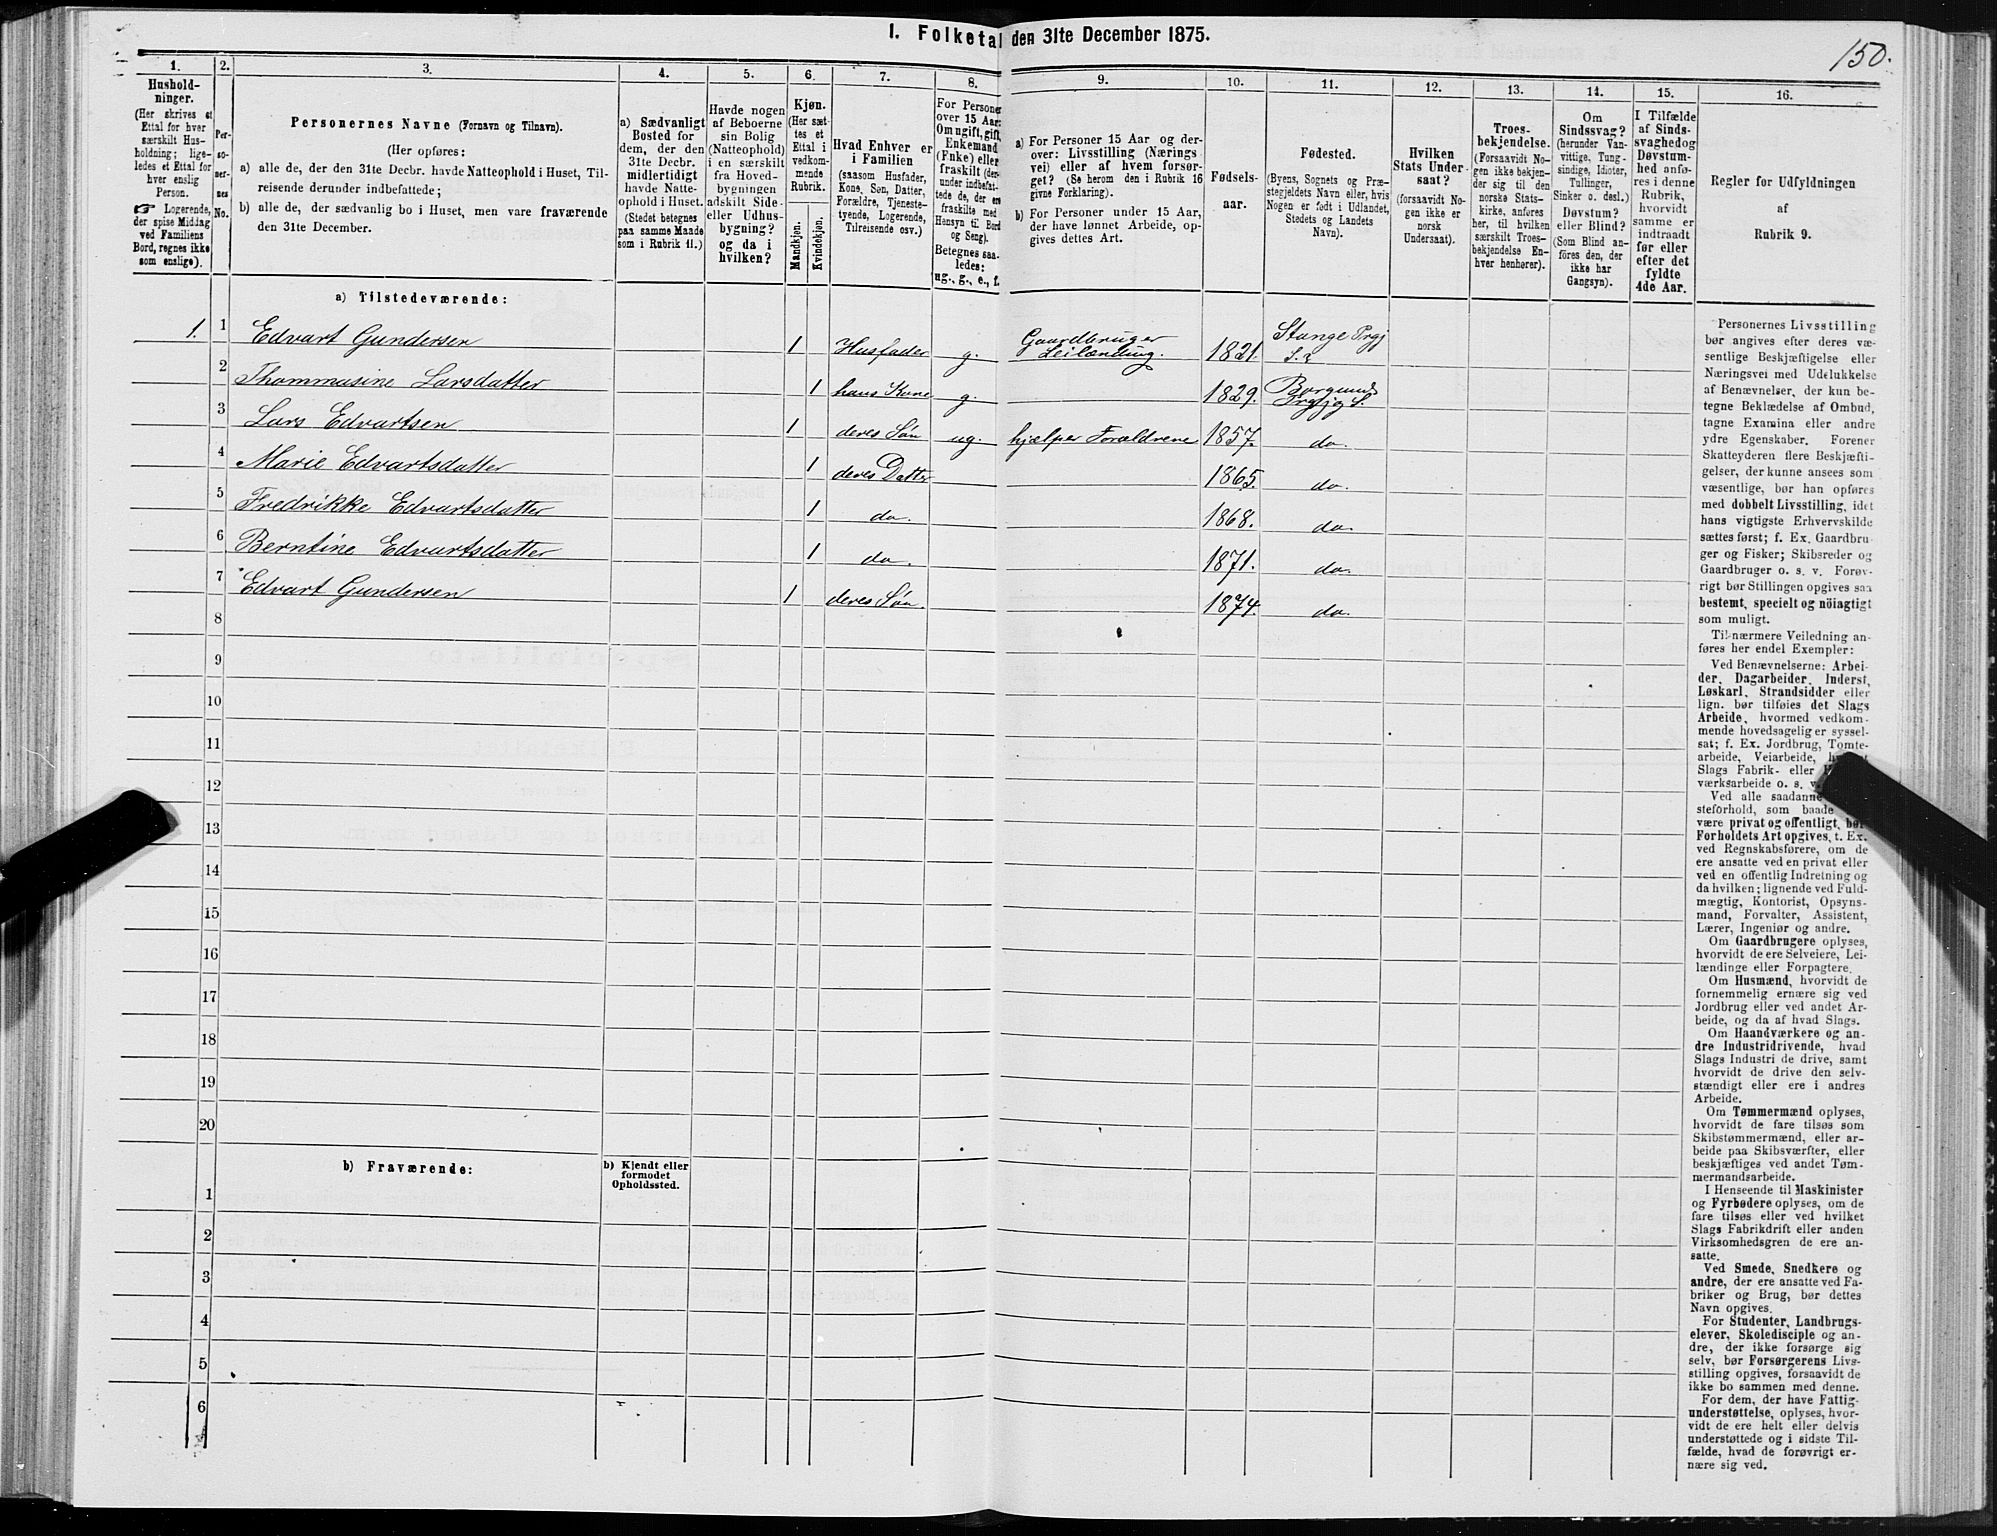 I. Folketal den 31te December 1875.
150.
1.
2.
3.
4.
5.
6.
7.
8.
9.
10.
11.
12.
13.
14.
15.
16.
Hushold-
ninger.
(Her skrives et
Ettal for hver
særskilt Hus-
holdning; lige-
ledes et Ettal for
hver enslig
Person.
☞ Logerende,
der spise Middag
ved Familiens
Bord, regnes ikke
som enslige).
Per-
so-
ner-
nes
No.
Personernes Navne (Fornavn og Tilnavn).
(Her opføres:
a) alle de, der den 31te Decbr. havde Natteophold i Huset, Til-
reisende derunder indbefattede;
b) alle de, der sædvanlig bo i Huset, men vare fraværende
den 31te December.
a) Sædvanligt
Bosted for
dem, der den
31te Decbr.
midlertidigt
havde Natte-
ophold i Huset.
(Stedet betegnes
paa samme Maade
som i Rubrik 11.)
Havde nogen
af Beboerne
sin Bolig
(Natteophold)
i en særskilt
fra Hoved-
bygningen
adskilt Side-
eller Udhus-
bygning?
og da i
hvilken?
Kjøn.
(Her sæt-
tes et
Ettal i
vedkom-
mende
Rubrik.
Mandkjøn.
Kvindekjøn.
Hvad Enhver er
i Familien
(saasom Husfader,
Kone, Søn, Datter,
Forældre, Tjeneste-
tyende, Logerende,
Tilreisende osv.)
For Personer
over 15 Aar:
Om ugift, gift,
Enkemand
(Enke) eller
fraskilt (der-
under indbefat-
tede de, der ere
fraskilte med
Hensyn til Bord
og Seng).
Betegnes saa-
ledes:
ug., g., e., f.
a) For Personer 15 Aar og der-
over: Livsstilling (Nærings
vei) eller af hvem forsør-
get? (Se herom den i Rubrik 16
givne Forklaring).
b) For Personer under 15 Aar,
der have lønnet Arbeide, op-
gives dettes Art.
Fødsels-
aar.
Fødested.
(Byens, Sognets og Præ-
stegjeldets Navn eller, hvis
Nogen er født i Udlandet,
Stedets og Landets
Navn).
Hvilken
Stats Under
saat?
(forsaavidt No-
gen ikke er
norsk
Undersaat).
Troes-
bekjendelse.
(Forsaavidt No-
gen ikke bekjen-
der sig til den
norske Stats-
kirke, anføres
her, til hvilken
særskilt Troes-
bekjendelse En-
hver henhører).
Om
Sindssvag?
(herunder Van-
vittige, Tung-
sindige, Idioter,
Tullinger,
Sinker o. desl.)
Døvstum?
eller Blind?
(Som Blind an-
føres den, der
ikke har
Gangsyn).
I Tilfælde
af Sinds-
svaghed og
Døvstum-
hed anfø-
res i denne
Rubrik,
hvorvidt
samme er
indtraadt
før eller
efter det
fyldte
4de Aar.
Regler for Udfyldningen
af
Rubrik 9.
a) Tilstedeværende:
1. 1 Edvart Gundersen 1 Husfader g. Gaardbruger Leilænding. 1821. Stange Prgj S.
2 Thommasine Larsdatter 1 hans Kone g. 1829. Borgunds Prgjg S.
3 Lars Edvartsen 1 deres Søn ug. hjælper Forældrene 1857. do.
4 Marie Edvartsdatter 1 deres Datter 1865. do.
5 Fredrikke Edvartsdatter 1 do. 1868. do.
6 Berntine Edvartsdatter 1 do. 1871. do.
7 Edvart Gundersen 1 deres Søn. 1874. do.
8
9
10
11
12
13
14
15
16
17
18
19
20
b) Fraværende:
b) Kjendt eller
formodet
Opholdssted.
1
2
3
4
5
6
Personernes Livsstilling
bør angives efter deres væ-
sentlige Beskjæftigelse eller
Næringsvei med Udelukkelse
af Benævnelser, der kun be-
tegne Beklædelse af Ombud,
tagne Examina eller andre
ydre Egenskaber. Forener
Skatteyderen flere Beskjæfti-
gelser, der kunne ansees som
væsentlige, bør han opføres
med dobbelt Livsstilling, idet
hans vigtigste Erhvervskilde
sættes først; f. Ex. Gaardbru-
ger og Fisker; Skibsreder og
Gaardbruger o. s. v. Forøv-
rigt bør Stillingen opgives saa
bestemt, specielt og nöiagtigt
som muligt.
Til nærmere Veiledning an-
føres her endel Exempler:
Ved Benævnelserne: Arbei-
der, Dagarbeider, Inderst,
Løskarl, Strandsidder eller
lign. bør tilføies det Slags
Arbeide, hvormed vedkom-
mende hovedsagelig er syssel-
sat; f. Ex. Jordbrug, Tomte-
arbeide, Veiarbeide,
Slags Fabrik- eller
værksarbeide o. s. v.
Ved alle saadanne
steforhold, som baade
være privat og offentligt, bør
Forholdets Art opgives, t. Ex.
ved Regnskabsførere, om de
ere ansatte ved en privat eller
ved en offentlig Indretning og
da hvilken; lignende ved Fuld-
mægtig, Kontorist, Opsyns-
mand, Forvalter, Assistent,
Lærer, Ingeniør og andre.
Om Gaardbrugere oplyses,
hvorvidt de ere Selveiere, Lei-
lændinge eller Forpagtere.
Om Husmænd, hvorvidt de
fornemmelig ernære sig ved
Jordbrug eller ved andet Ar-
beide, og da af hvad Slags.
Om Haandværkere og an-
dre Industridrivende, hvad
Slags Industri de drive, samt
hvorvidt de drive den selv-
stændigt eller ere i andres
Arbeide.
Om Tømmermænd oplyses,
hvorvidt de fare tilsøs som
Skibstømmermænd, eller ar-
beide paa Skibsværfter, eller
beskjæftiges ved andet Tøm-
mermandsarbeide.
I Henseende til Maskinister
og Fyrbødere oplyses, om de
fare tilsøs eller ved hvilket
Slags Fabrikdrift eller anden
Virksomhedsgren de ere an-
satte.
Ved Smede, Snedkere og
andre, der ere ansatte ved Fa-
briker og Brug, bør dettes
Navn opgives.
For Studenter, Landbrugs-
elever, Skoledisciple og an-
dre, der ikke forsørge sig
selv, bør Forsørgerens Livs-
stilling opgives, forsaavidt de
ikke bo sammen med denne.
For dem, der have Fattig-
understøttelse, oplyses, hvor-
vidt de ere helt eller delvis
understøttede og i sidste Til-
fælde, hvad de forøvrigt er-
nære sig ved.